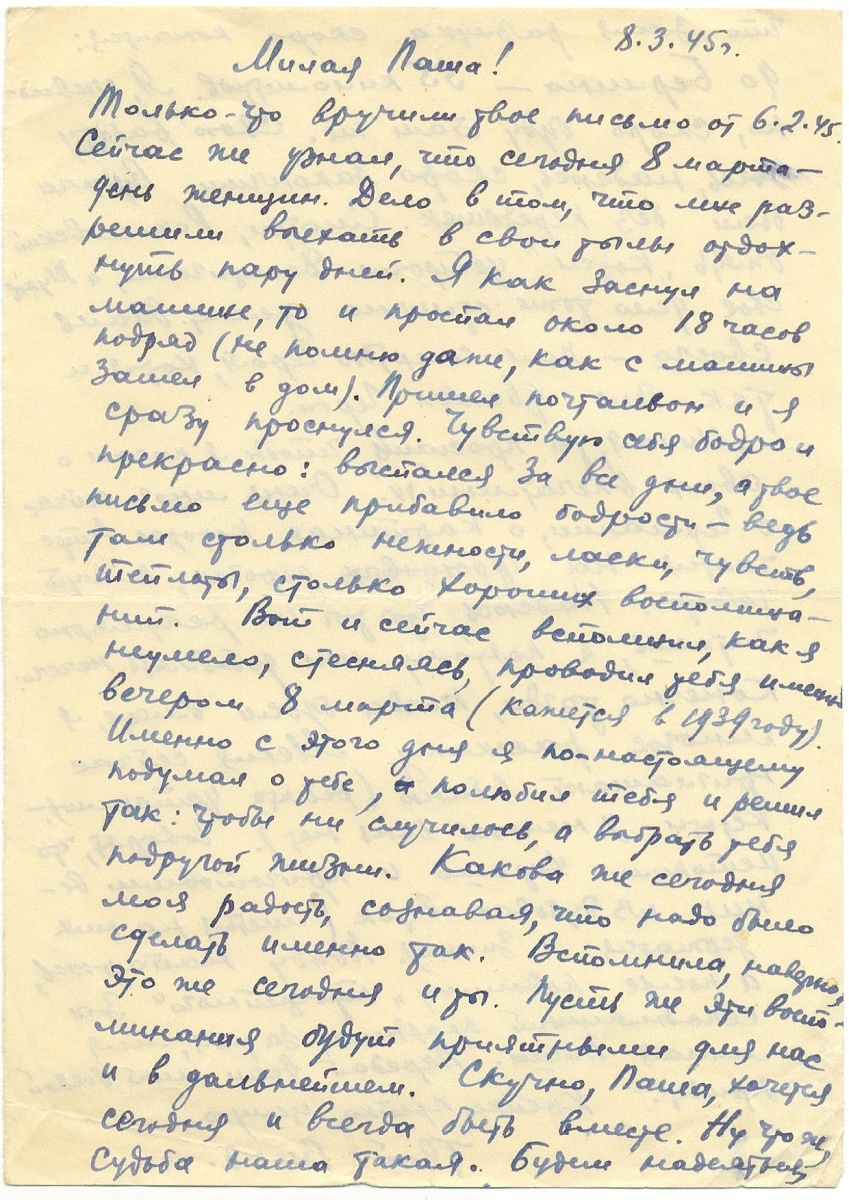 8.3.45г.
Милая Паша!
Только-что вручили твое письмо от 6.2.45.
Сейчас же узнал, что сегодня 8 марта –
день женщин. Дело в том, что мне раз-
решили выехать в свои тылы отдох-
нуть пару дней. Я как заснул на
машине, то и проспал около 18 часов
подряд (не помню даже, как с машины
зашел в дом). Пришел почтальон и я
сразу проснулся. Чувствую себя бодро и
прекрасно: выспался за все дни, а твое
письмо еще прибавило бодрости – ведь
там столько нежности, ласки, чувств,
теплоты, столько хороших воспомина-
ний. Вот и сейчас вспомнил, как я
неумело, стесняясь, проводил тебя именно
вечером 8 марта (кажется в 1939 году).
Именно с этого дня я по-настоящему
подумал о тебе, полюбил тебя и решил
так: чтобы ни случилось, а выбрать тебя
подругой жизни. Какова же сегодня
моя радость, сознавая, что надо было
сделать именно так. Вспомнила, наверно,
это же сегодня и ты. Пусть же эти воспо-
минания будут приятными для нас
и в дальнейшем. Скучно, Паша, хочется
сегодня и всегда быть вместе. Ну что ж,
судьба наша такая. Будем надеяться,